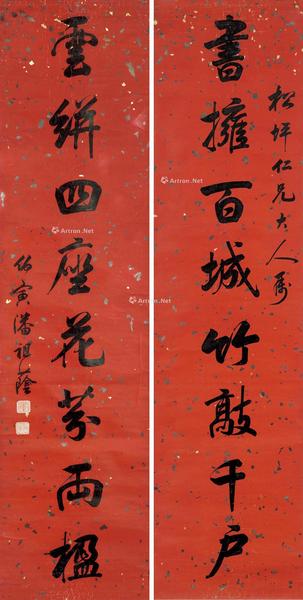 松坪仁兄大人属
書擁百城竹敲千户
雲絣四座花芬兩楹
伯寅潘祖蔭
Artron.Net
Artron.Net
Artron.Net
Artron.Net